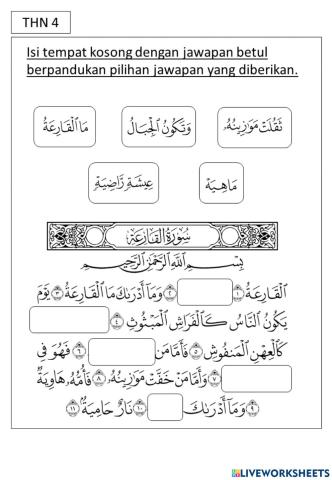 THN 4
Isi tempat kosong dengan jawapan betul
berpandukan pilihan jawapan yang diberikan.
مَا ٱلْقَارِعَةُ
وَتَكُونُ ٱلْجِبَالُ
ثَقُلَتْ مَوَٰزِينُهُۥ
عِيشَةٍ رَّاضِيَةٍ
مَا هِيَهْ
سُورَةُ القَارِعَة
بِسْمِ ٱللَّهِ ٱلرَّحْمَٰنِ ٱلرَّحِيمِ
ٱلْقَارِعَةُ ١ ٢ وَمَآ أَدْرَىٰكَ مَا ٱلْقَارِعَةُ ٣ يَوْمَ
يَكُونُ ٱلنَّاسُ كَٱلْفَرَاشِ ٱلْمَبْثُوثِ ٤
كَٱلْعِهْنِ ٱلْمَنفُوشِ ٥ فَأَمَّا مَن ٦ فَهُوَ فِي
٧ وَأَمَّا مَنْ خَفَّتْ مَوَٰزِينُهُۥ ٨ فَأُمُّهُۥ هَاوِيَةٌ
٩ وَمَآ أَدْرَىٰكَ ١٠ نَارٌ حَامِيَةٌۢ ١١
LIVEWORKSHEETS